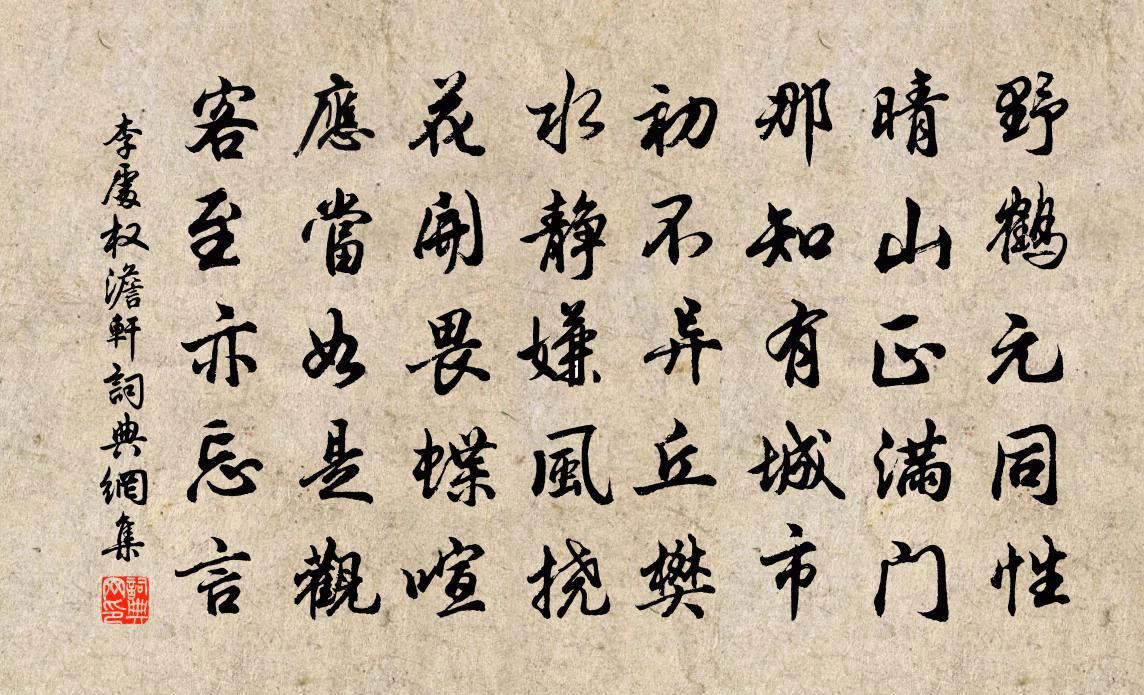 野鹤元同性
晴山正满门
那知有城市
初不异丘樊
水静嫌風挠
花開畏蝶喧
應當如是觀
客至亦忘言
李處权澹軒詞典網集
詞典网印